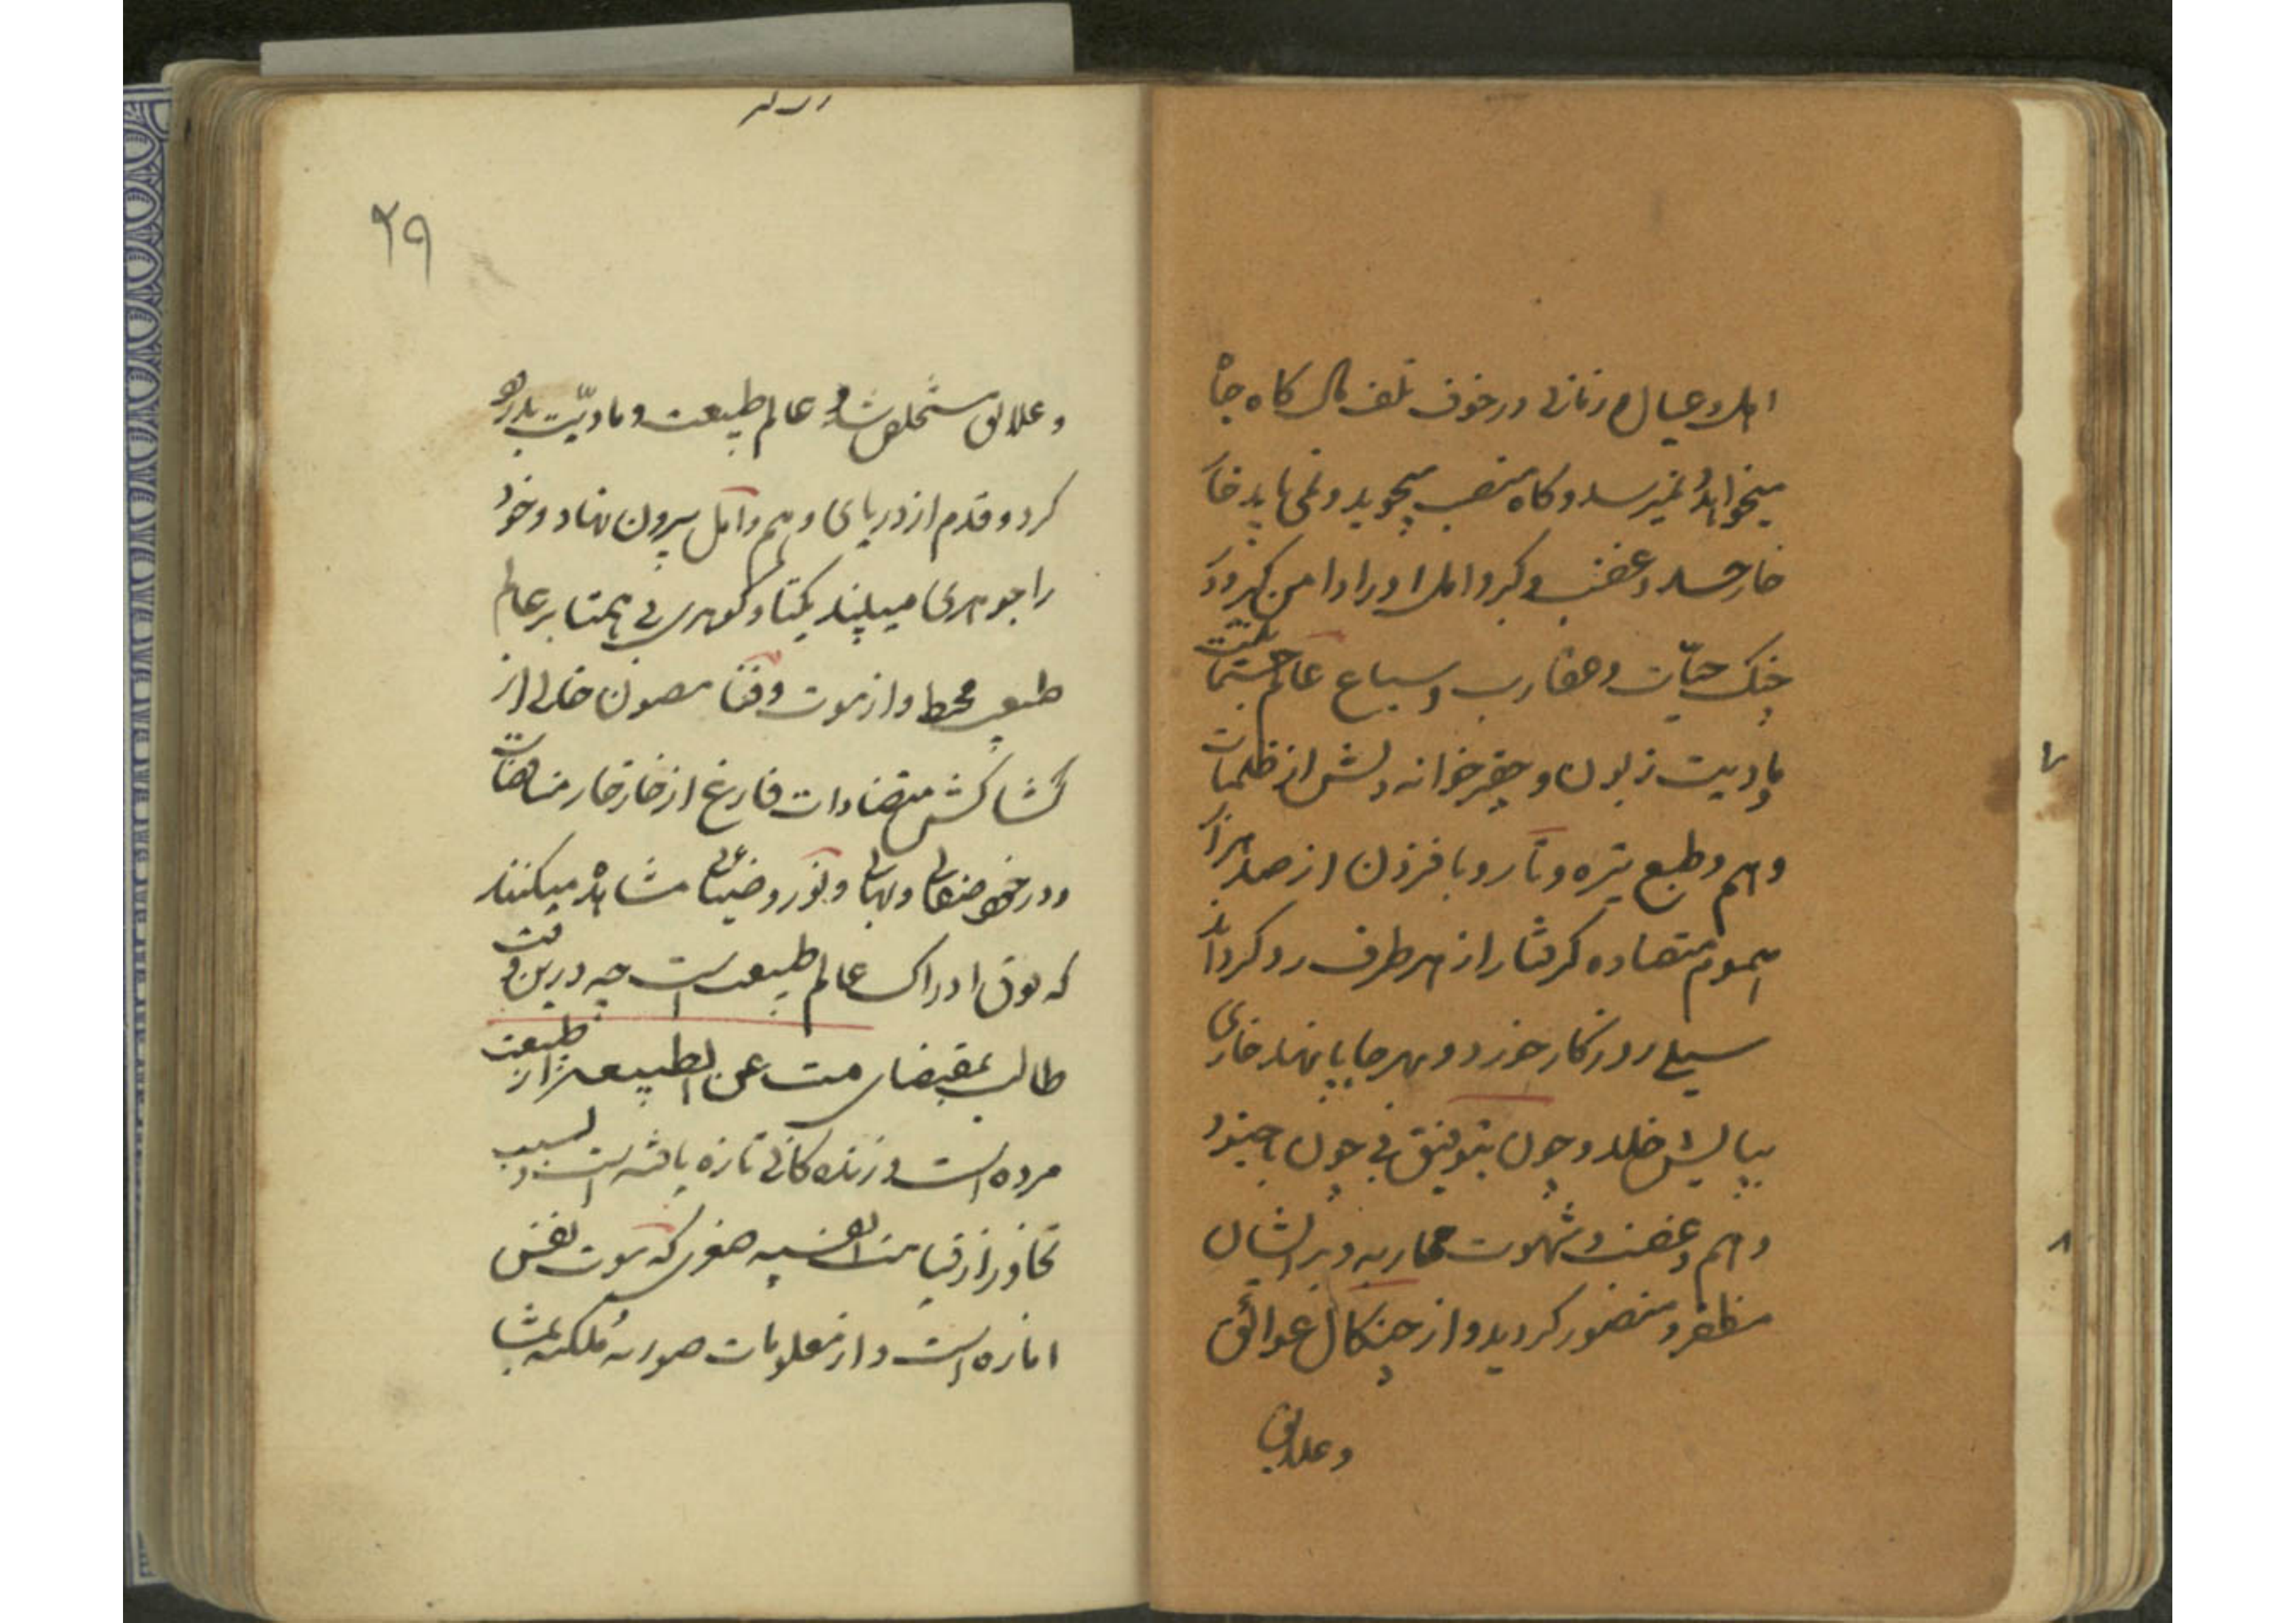 اهل و عیال و زمانی در خوف تلف مال کاه جاه
میخواهد و نمیرسد و کاه منصب میجوید و نمی یابد خار
خار حسد و غضب و کبر و امل او را دامن کیر و در
چنک حیّات و عقارب و سباع عالم جسمانیت
مادیت زبون و حقر خوانه دلش از ظلمات
وهم و طبع تیره و تار و با فزون از صد هزار
هموم متضاده کرفتار از هر طرف رو کرداند
سیلی روزکار خورد و بهر جا پا نهد خاری
بپایش خلد و چون بتوفیق بی چون با جنود
وهم و غضب و شهوت محاربه و بر ایشان
مظفر و منصور کردید و از چنکال عوائق
و علایق
۲۹
و علائق مستخلص شد و عالم طبیعت و مادیّت بدرود
کرد و قدم از دریای وهم و امل بیرون نهاد و خود
را جوهری میبیند یکتا و کوهری بی همتا بر عالم
طبیعت محیط و از موت و فنا مصون خالی از
کشاکش متضادات فارغ از خار خار منافضات
و در خود صفائی و بهائی و نور و ضیائی مشاهده میکنند
که فوق ادراک عالم طبیعت است چه درین وقت
طالب بمقتضای مت عن الطبیعه از طبیعت
مرده است و زنده کانی تازه یافته است و بسبب
تجاوز از قیامت انفسیه صغری که موت نفس
اماره است و از معلومات صوریه ملکیه بمشا